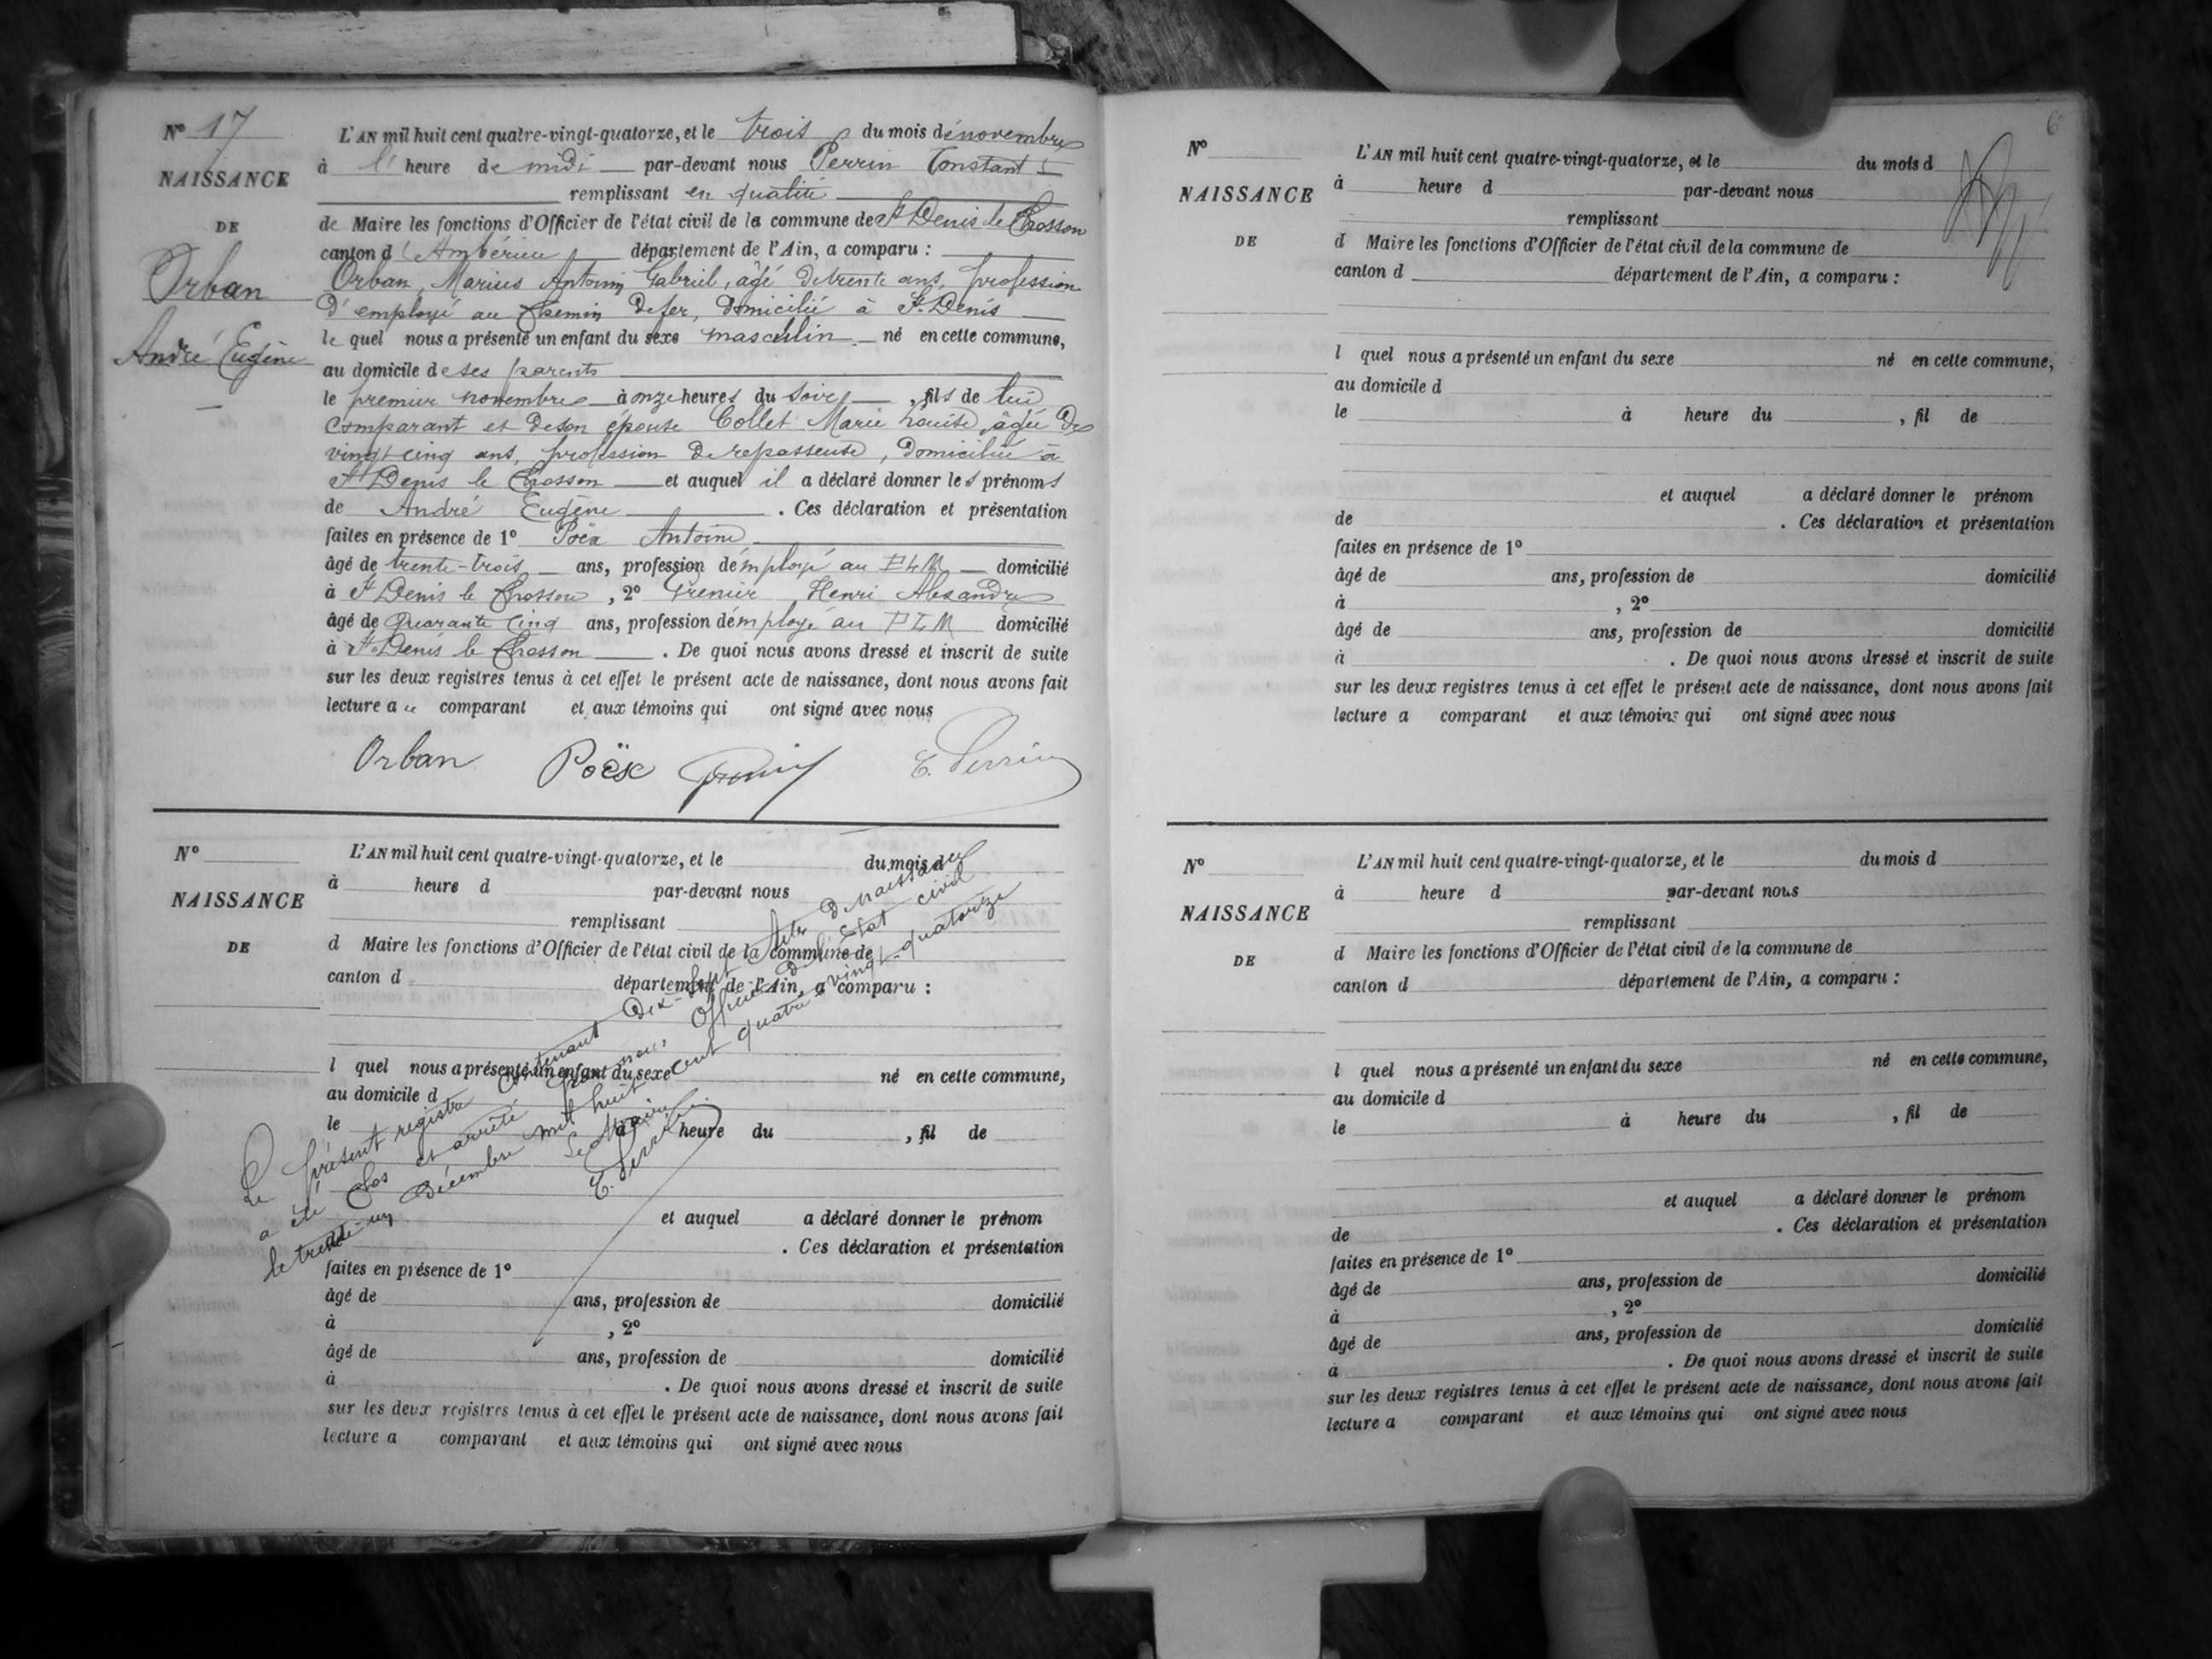 N° 17
NAISSANCE
DE
Orban
André Eugène
L'AN mil huit cent quatre-vingt-quatorze, et le trois du mois de novembre
à l' heure de midi par-devant nous Perrin Constant
remplissant en qualité
de Maire les fonctions d'Officier de l'état civil de la commune de St Denis le Chosson
canton d'Ambérieu département de l'Ain, a comparu :
Orban, Marius Antonin Gabriel, âgé de trente ans, profession
d'employé au chemin de fer, domicilié à St Denis
le quel nous a présenté un enfant du sexe masculin né en cette commune,
au domicile de ses parents
le premier novembre à onze heures du soir, fils de lui
comparant et de son épouse Collet Marie Louise, âgée de
vingt cinq ans, profession de repasseuse, domiciliée à
St Denis le Chosson et auquel il a déclaré donner les prénoms
de André Eugène . Ces déclaration et présentation
faites en présence de 1° Poëx Antoine
âgé de trente-trois ans, profession d'employé au PLM domicilié
à St Denis le Chosson , 2° Grenier Henri Alexandre
âgé de quarante cinq ans, profession d'employé au PLM domicilié
à St Denis le Chosson . De quoi nous avons dressé et inscrit de suite
sur les deux registres tenus à cet effet le présent acte de naissance, dont nous avons fait
lecture au comparant et aux témoins qui ont signé avec nous
Orban Poëx Grenier C. Perrin
N°
NAISSANCE
DE
L'AN mil huit cent quatre-vingt-quatorze, et le du mois d
à heure d par-devant nous
remplissant
d Maire les fonctions d'Officier de l'état civil de la commune de
canton d département de l'Ain, a comparu :
l quel nous a présenté un enfant du sexe né en cette commune,
au domicile d
le à heure du , fil de
et auquel a déclaré donner le prénom
de . Ces déclaration et présentation
faites en présence de 1°
âgé de ans, profession de domicilié
à , 2°
âgé de ans, profession de domicilié
à . De quoi nous avons dressé et inscrit de suite
sur les deux registres tenus à cet effet le présent acte de naissance, dont nous avons fait
lecture a comparant et aux témoins qui ont signé avec nous
Le présent registre contenant dix-sept actes de naissance
a été clos et arrêté par nous, officier de l'état civil
le trente-un décembre mil huit cent quatre-vingt-quatorze
Le Maire
C. Perrin
6
N°
NAISSANCE
DE
L'AN mil huit cent quatre-vingt-quatorze, et le du mois d
à heure d par-devant nous
remplissant
d Maire les fonctions d'Officier de l'état civil de la commune de
canton d département de l'Ain, a comparu :
l quel nous a présenté un enfant du sexe né en cette commune,
au domicile d
le à heure du , fil de
et auquel a déclaré donner le prénom
de . Ces déclaration et présentation
faites en présence de 1°
âgé de ans, profession de domicilié
à , 2°
âgé de ans, profession de domicilié
à . De quoi nous avons dressé et inscrit de suite
sur les deux registres tenus à cet effet le présent acte de naissance, dont nous avons fait
lecture a comparant et aux témoins qui ont signé avec nous
N°
NAISSANCE
DE
L'AN mil huit cent quatre-vingt-quatorze, et le du mois d
à heure d par-devant nous
remplissant
d Maire les fonctions d'Officier de l'état civil de la commune de
canton d département de l'Ain, a comparu :
l quel nous a présenté un enfant du sexe né en cette commune,
au domicile d
le à heure du , fil de
et auquel a déclaré donner le prénom
de . Ces déclaration et présentation
faites en présence de 1°
âgé de ans, profession de domicilié
à , 2°
âgé de ans, profession de domicilié
à . De quoi nous avons dressé et inscrit de suite
sur les deux registres tenus à cet effet le présent acte de naissance, dont nous avons fait
lecture a comparant et aux témoins qui ont signé avec nous